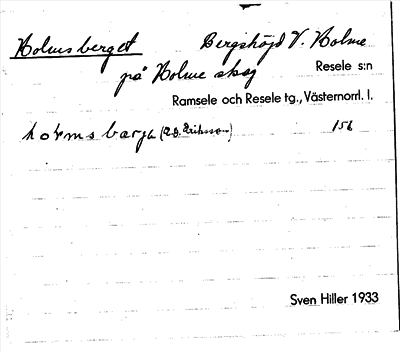 Holmsberget Bergshöjd V. Holme
på Holme skog Resele s:n
Ramsele och Resele tg., Västernorrl. l.
156
Sven Hiller 1933